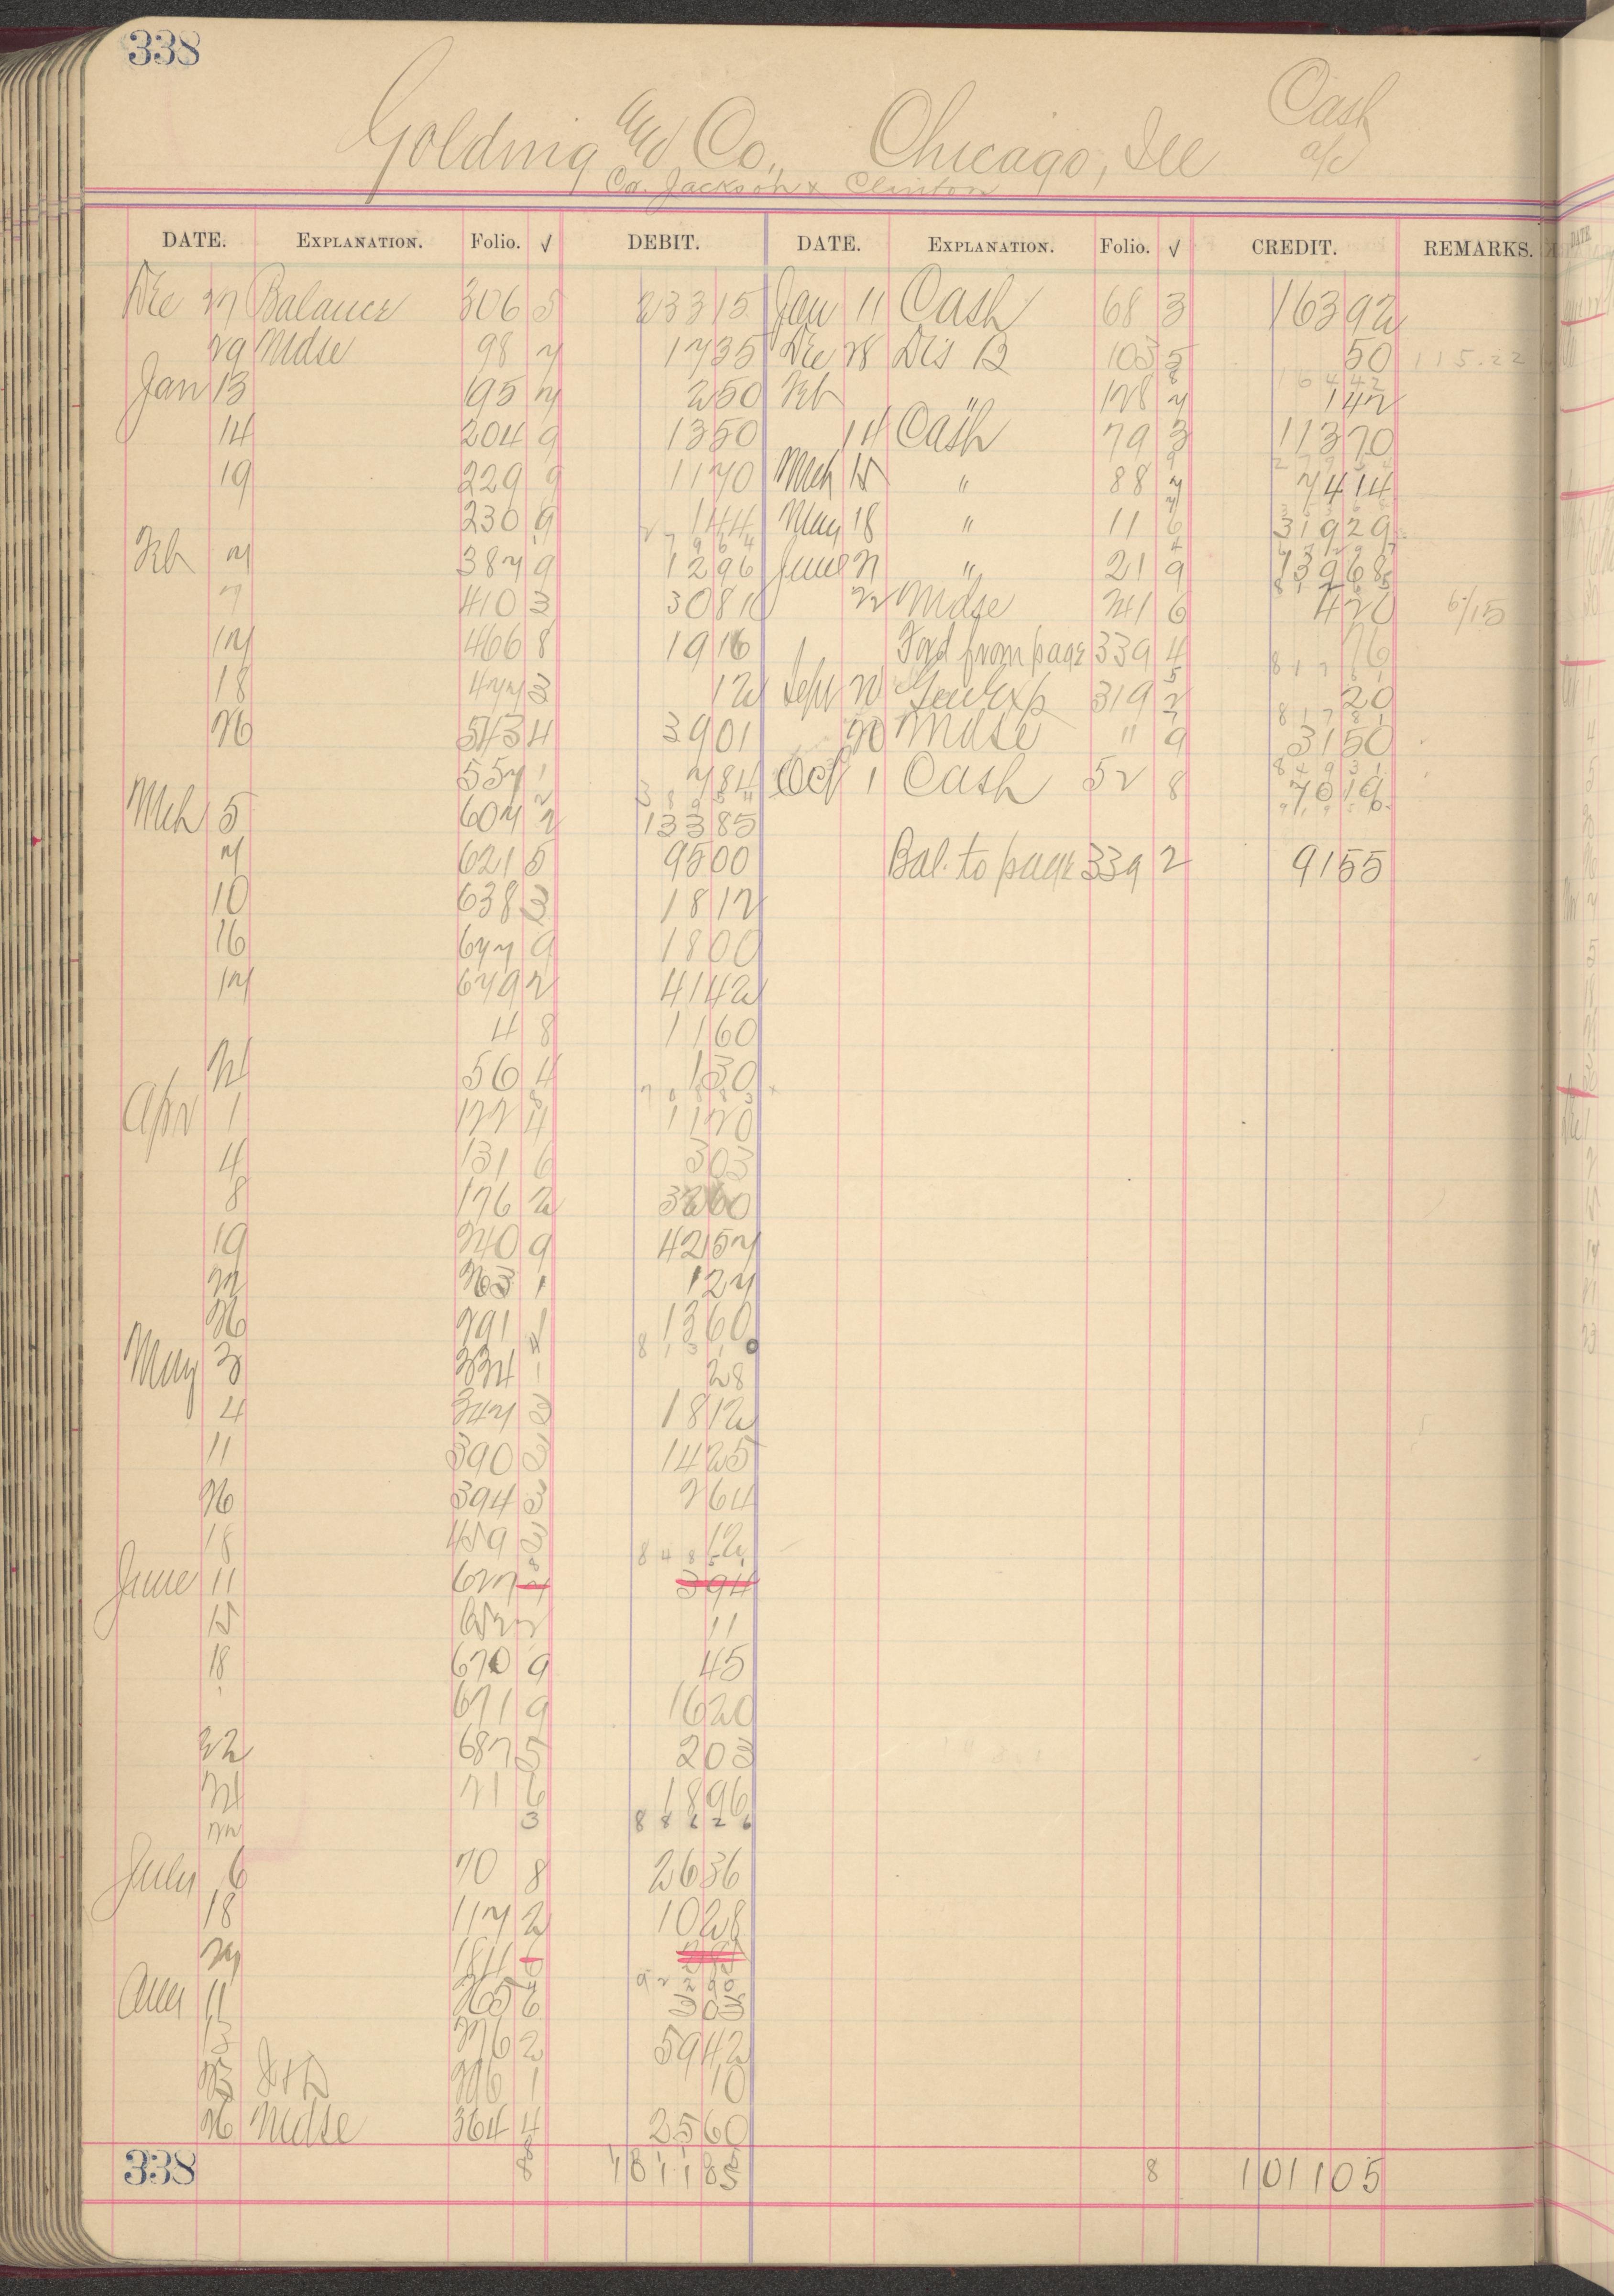 338
Golding and Co., Chicago, Ill Cash a/c
Co. Jackson & Clinton
DATE. EXPLANATION. Folio. √ DEBIT. DATE. EXPLANATION. Folio. √ CREDIT. REMARKS.
Dec 27 Balance 306 5 233 15 Jan 11 Cash 68 3 163 92
29 Mdse 98 7 17 35 Dec 28 Dis B 103 5 50 115.22
Jan 13 195 7 2 50 Feb " 128 7 1 42
14 204 9 13 50 14 Cash 79 3 113 70
19 229 9 11 70 Mch 15 " 88 7 74 14
230 9 1 44 May 18 " 11 6 319 29
Feb 7 387 9 12 96 June 21 " 21 9 139 68
7 410 3 30 81 22 Mdse 241 6 4 20 6/15
17 466 8 19 16 Ford from page 339 4 76
18 477 3 12 Sept 20 Gen Exp 319 2 20
26 543 4 39 01 20 Mdse " 9 31 50
557 1 7 84 Oct 1 Cash 52 8 70 19
Mch 5 607 2 133 85
7 621 5 95 00 Bal. to page 339 2 91 55
10 638 3 18 12
16 677 9 18 00
17 679 2 41 42
4 8 11 60
24 56 4 1 30
Apr 1 122 4 11 20
4 131 6 3 03
8 176 2 60
19 240 9 42 57
22 263 1 1 27
26 291 1 13 60
May 3 334 1 28
4 347 3 18 12
11 390 3 14 25
26 394 3 2 64
18 459 3 12
June 11 627 3 94
15 11
18 670 9 45
671 9 16 20
22 687 5 2 03
24 71 6 18 96
3 886 26
July 6 70 8 26 36
18 117 2 10 28
27 184
Aug 11 265 6 3 03
15 276 2 59 42
23 I & D 296 1 10
26 Mdse 364 4 25 60
338 8 1011 05 8 1011 05